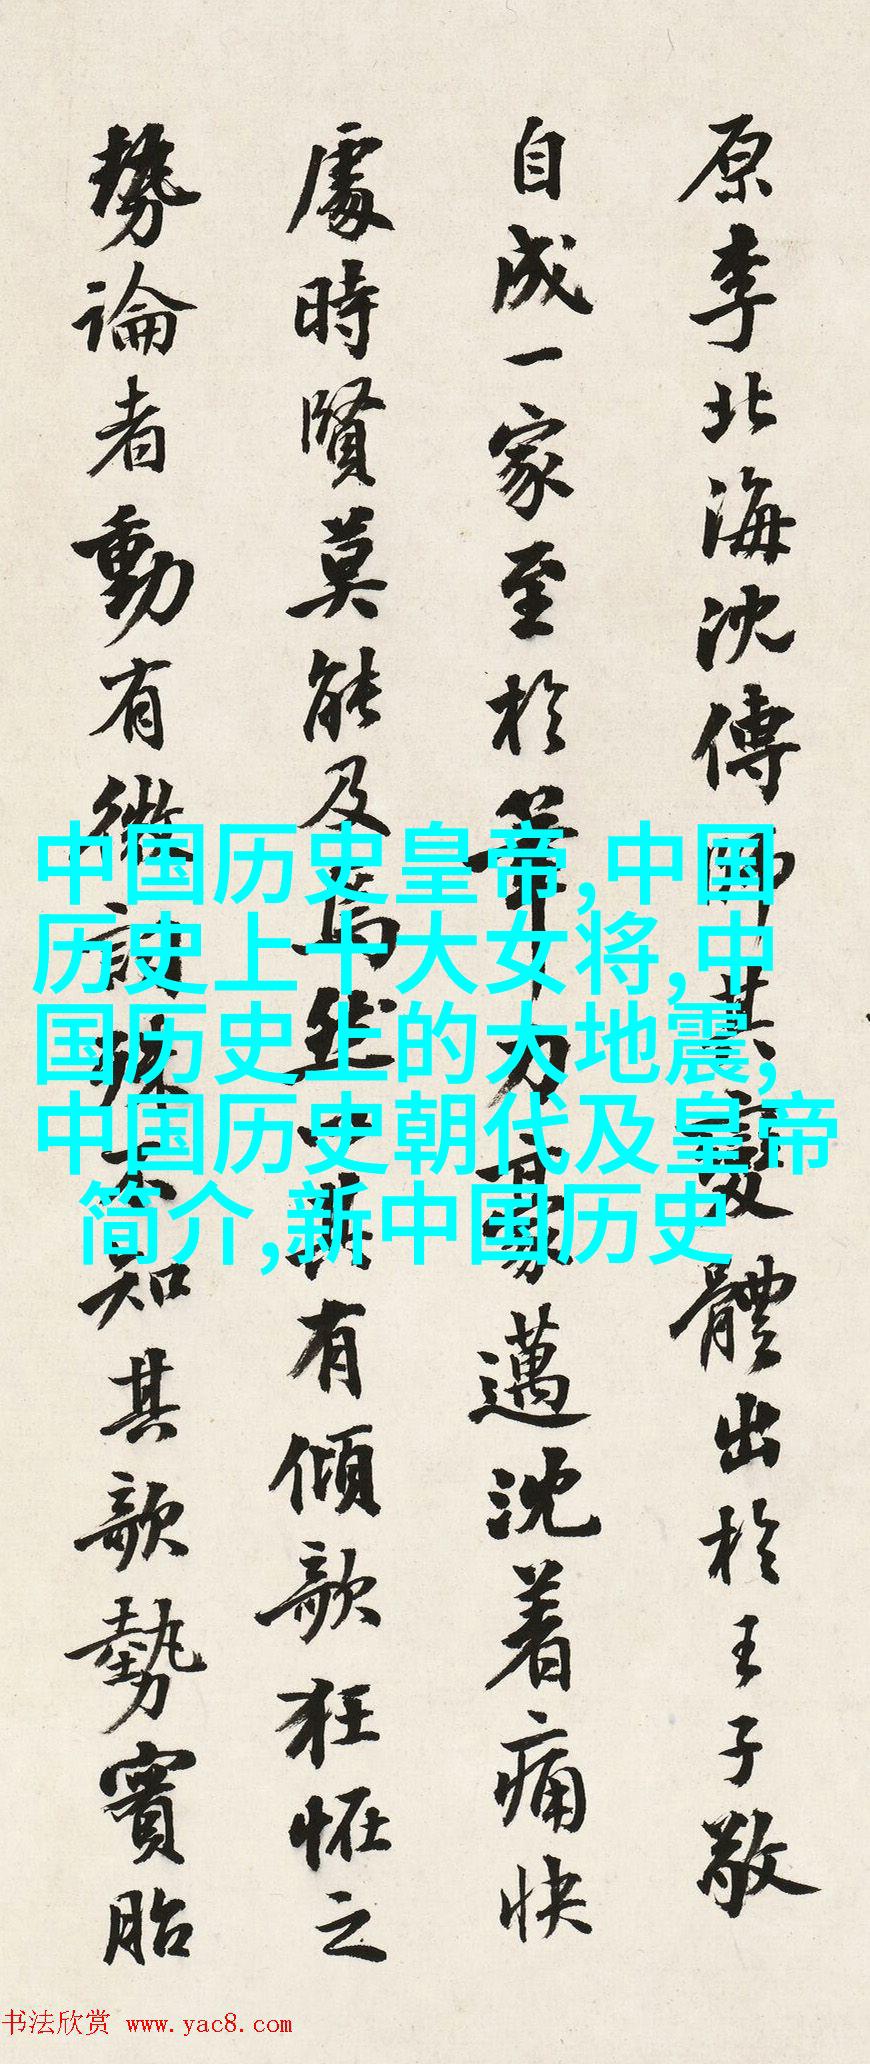 原李北海沈傳師其變體出於王子敬
自成一家至於筆力豪邁沈着痛快
處時賢莫能及焉然有傾欹狂恠之
勢論者動有微詞殊不知其欹勢實胎
中国历史皇帝,中国
历史上十大女将,中
国历史上的大地震,
中国历史朝代及皇帝
简介,新中国历史
书法欣赏 www.yac8.com